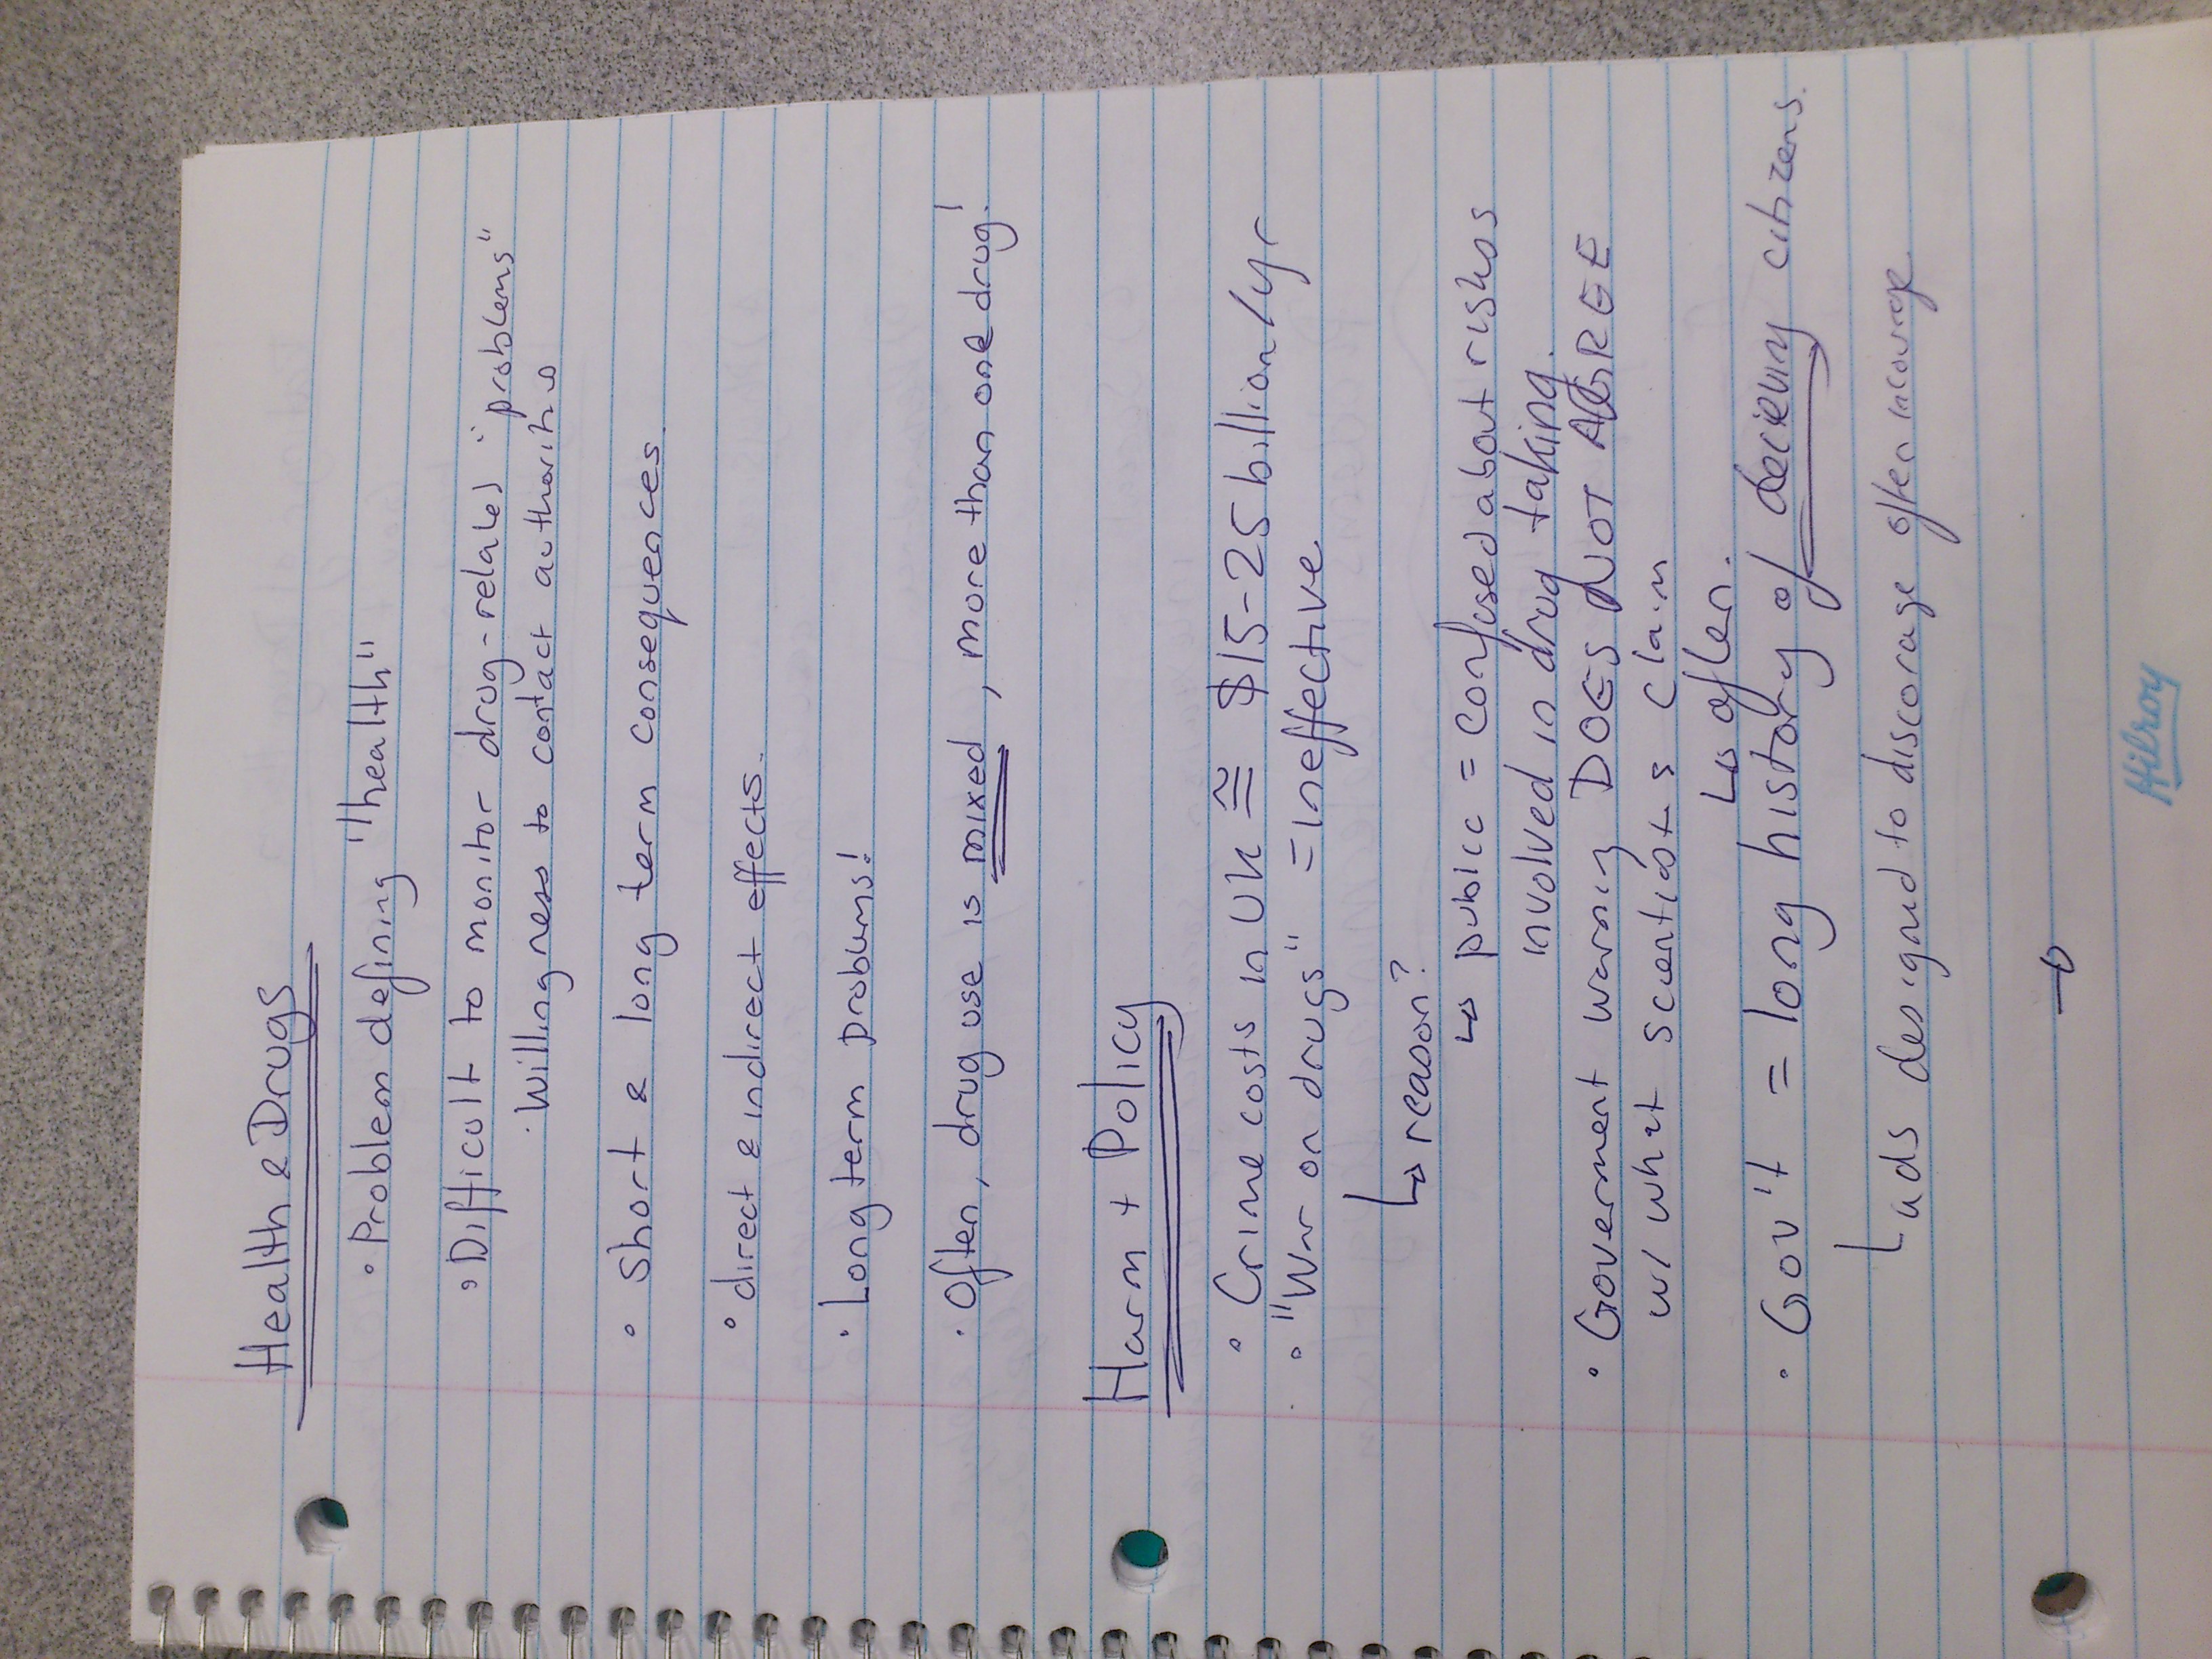 Health & Drugs
· Problem defining "health"
· Difficult to monitor drug-related "problems"
· Willingness to contact authorities
· Short & long term consequences.
· direct & indirect effects.
· Long term problems!
· Often, drug use is mixed, more than one drug!
Harm + Policy
· Crime costs in UK ≅ $15-25 billion/yr
· "War on drugs" = ineffective.
↳ reason?
↳ public = confused about risks
involved in drug taking.
· Government warning DOES NOT AGREE
w/ what scientists claim
↳ often.
· Gov't = long history of decieving citizens.
↳ ads designed to discorage often incourage
→
Hilroy